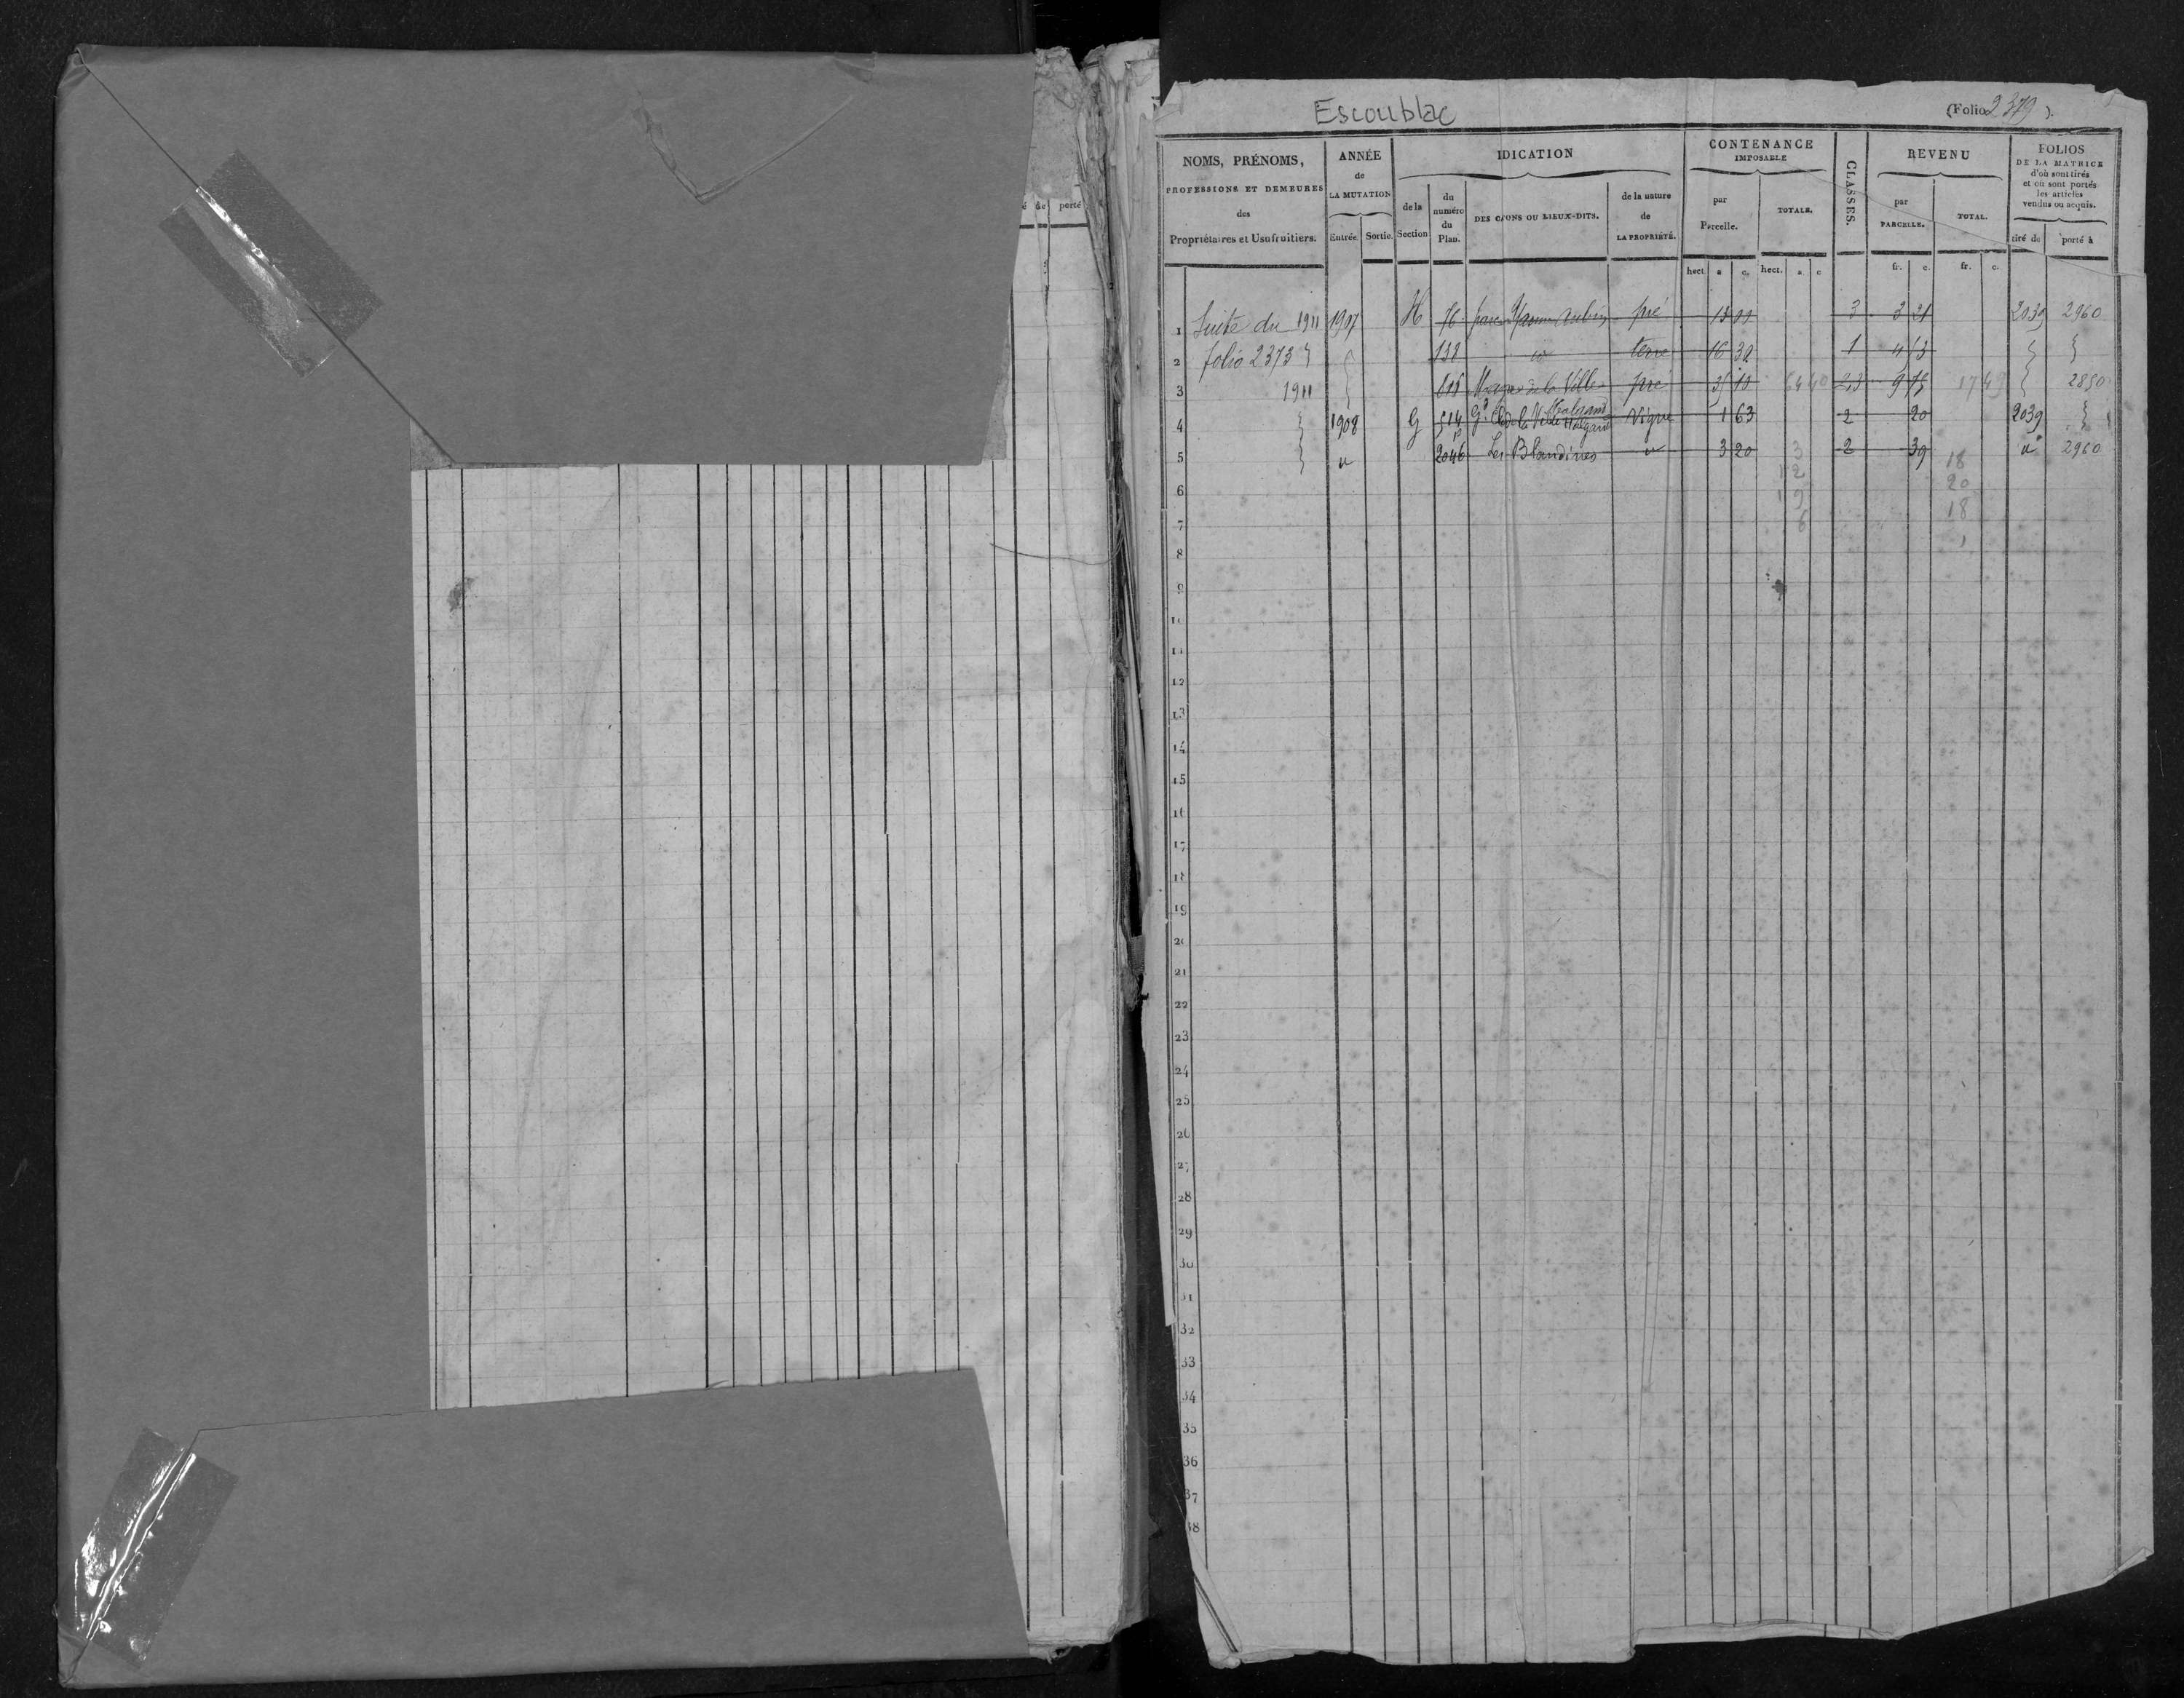 é de porté
Escoublac
(Folio 2379).
NOMS, PRÉNOMS,
PROFESSIONS ET DEMEURES
des
Propriétaires et Usufruitiers.
ANNÉE
de
LA MUTATION
Entrée. Sortie.
IDICATION
de la
Section
du
numéro
du
Plan.
DES CAONS OU LIEUX-DITS.
de la nature
de
LA PROPRIÉTÉ.
CONTENANCE
IMPOSABLE
par
Parcelle.
TOTALE.
hect. a c. hect. a. c
CLASSES.
REVENU
par
PARCELLE.
TOTAL.
fr. c. fr. c.
FOLIOS
DE LA MATRICE
d'où sont tirés
et où sont portés
les articles
vendus ou acquis.
tiré de porté à
1 Suite du 1911 1907 H 76 pré 3 3 21 2039 2960
2 folio 2373 138 terre 16 30 1 4
3 1911 de la Ville pré 35 10 64 40 2,3 9 75 17 49 2850
4 1908 G 514 Gd Clos de la Ville vigne 1 63 2 20 2039
5 2046 Les Blandines 3 20 3 2 39 18 2960
6 12 20
7 19 18
6
8
9
10
11
12
13
14
15
16
17
18
19
20
21
22
23
24
25
26
27
28
29
30
31
32
33
34
35
36
37
38